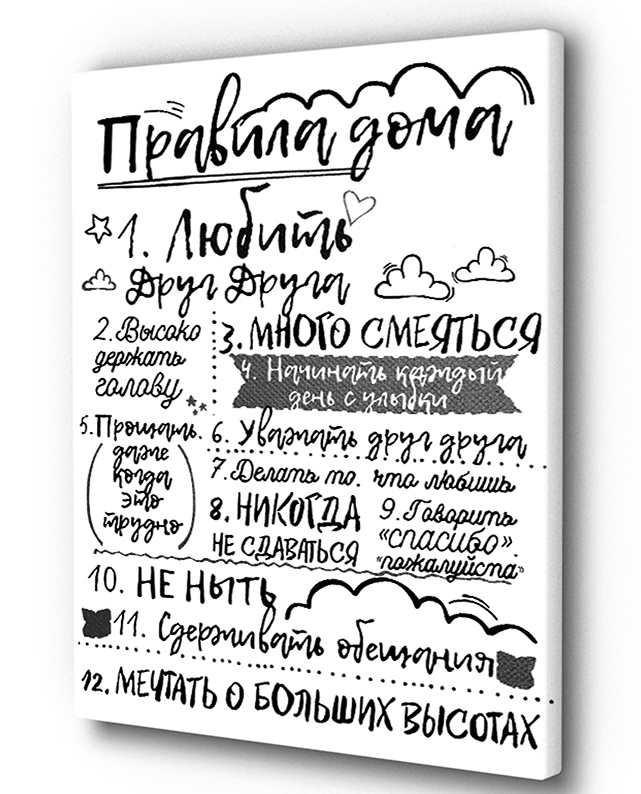 Правила дома
1. Любить
Друг Друга
2. Высоко
держать
голову
3. МНОГО СМЕЯТЬСЯ
4. Начинать каждый
день с улыбки
5. Прощать.
даже
когда
это
трудно
6. Уважать друг друга
7. Делать то. что любишь
8. НИКОГДА
НЕ СДАВАТЬСЯ
9. Говорить
«СПАСИБО».
"пожалуйста"
10. НЕ НЫТЬ
11. Сдерживать обещания
12. МЕЧТАТЬ О БОЛЬШИХ ВЫСОТАХ